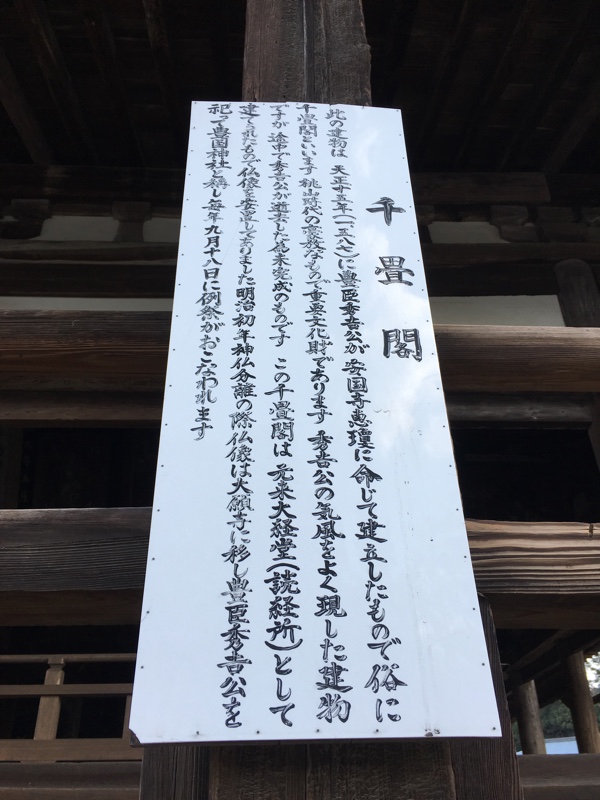 千畳閣
此の建物は 天正十五年(一五八七)に豊臣秀吉公が安国寺恵瓊に命じて建立したもので俗に
千畳閣といいます 桃山時代の豪放なもので重要文化財であります 秀吉公の気風をよく現した建物
ですが 途中で秀吉公が逝去した為未完成のものです この千畳閣は 元来大経堂(読経所)として
建てられたもので仏像を安置してありました明治初年神仏分離の際仏像は大願寺に移し豊臣秀吉公を
祀って豊国神社と称し毎年九月十八日に例祭がおこなわれます